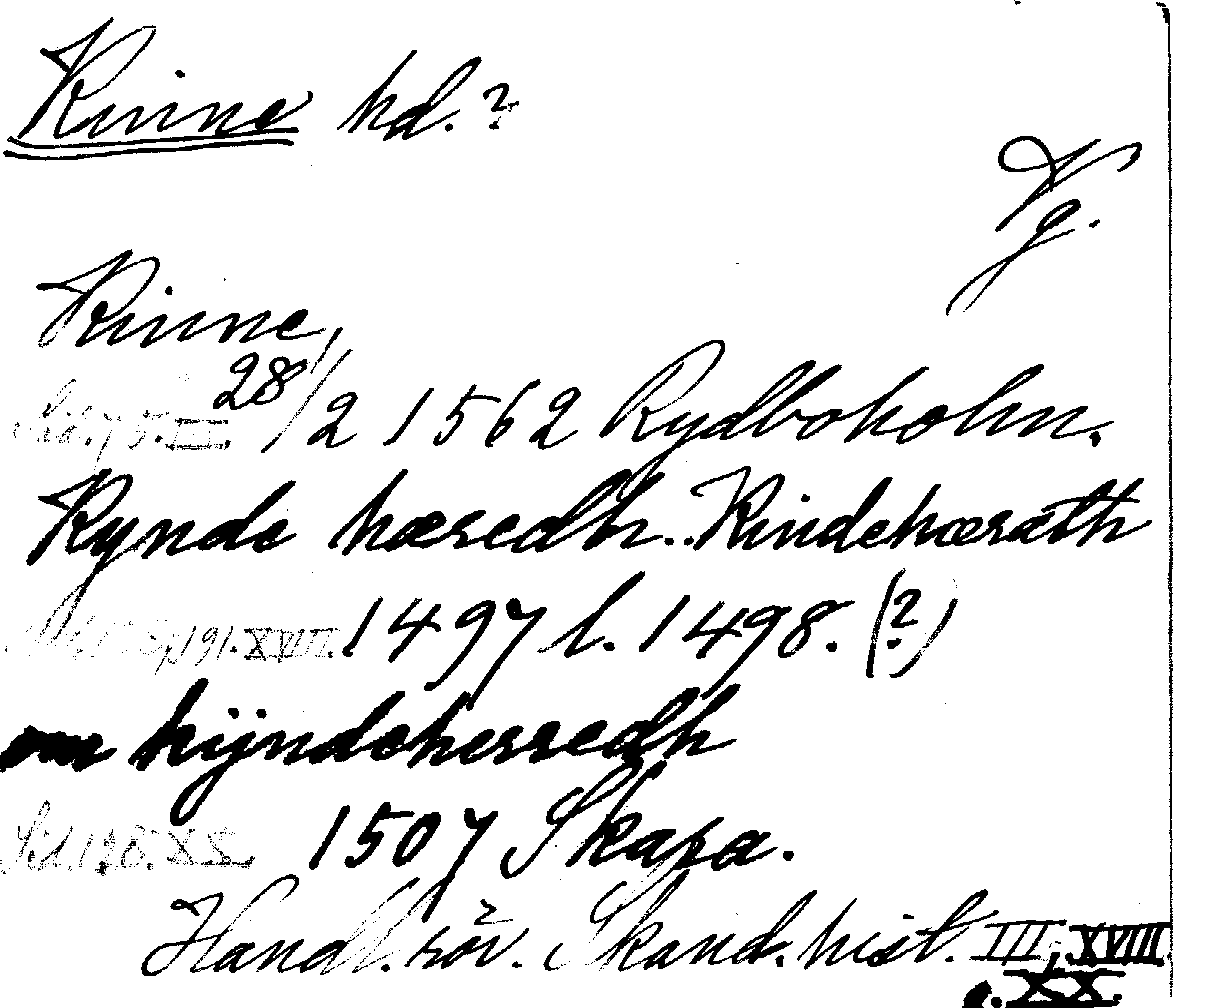 Kinne hd.?
Vg.
Kinne,
Sid. 75. III. 28/2 1562 Rydboholm.
Kynde hæredh.. Kindehæræth
191. XVIII. 1497 l. 1498. (?)
om kijndeherredh
Sid. 198. XX. 1507 Skara.
Handl. rör. Skand. hist. III, XVIII
o. XX.